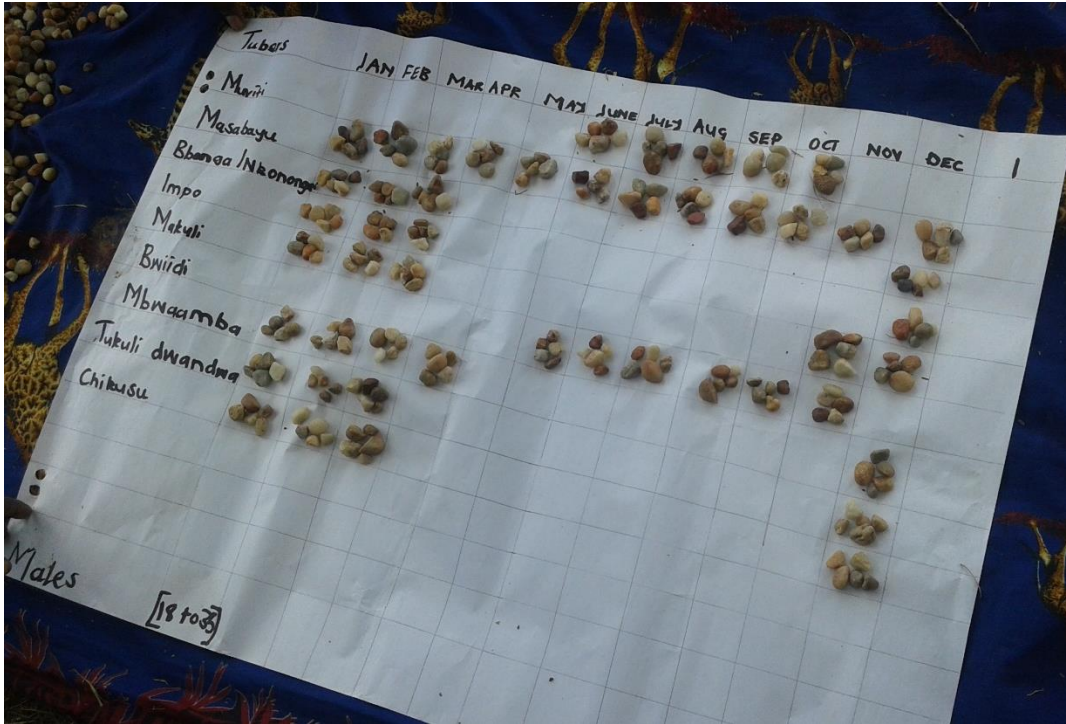 Tubers JAN FEB MAR APR MAY JUNE JULY AUG SEP OCT NOV DEC
Masabayu
Bbonga / Nkononga
Impo
Makuli
Bwiidi
Mbwaamba
Tukuli dwandwa
Chikusu
Males [18 to 35]